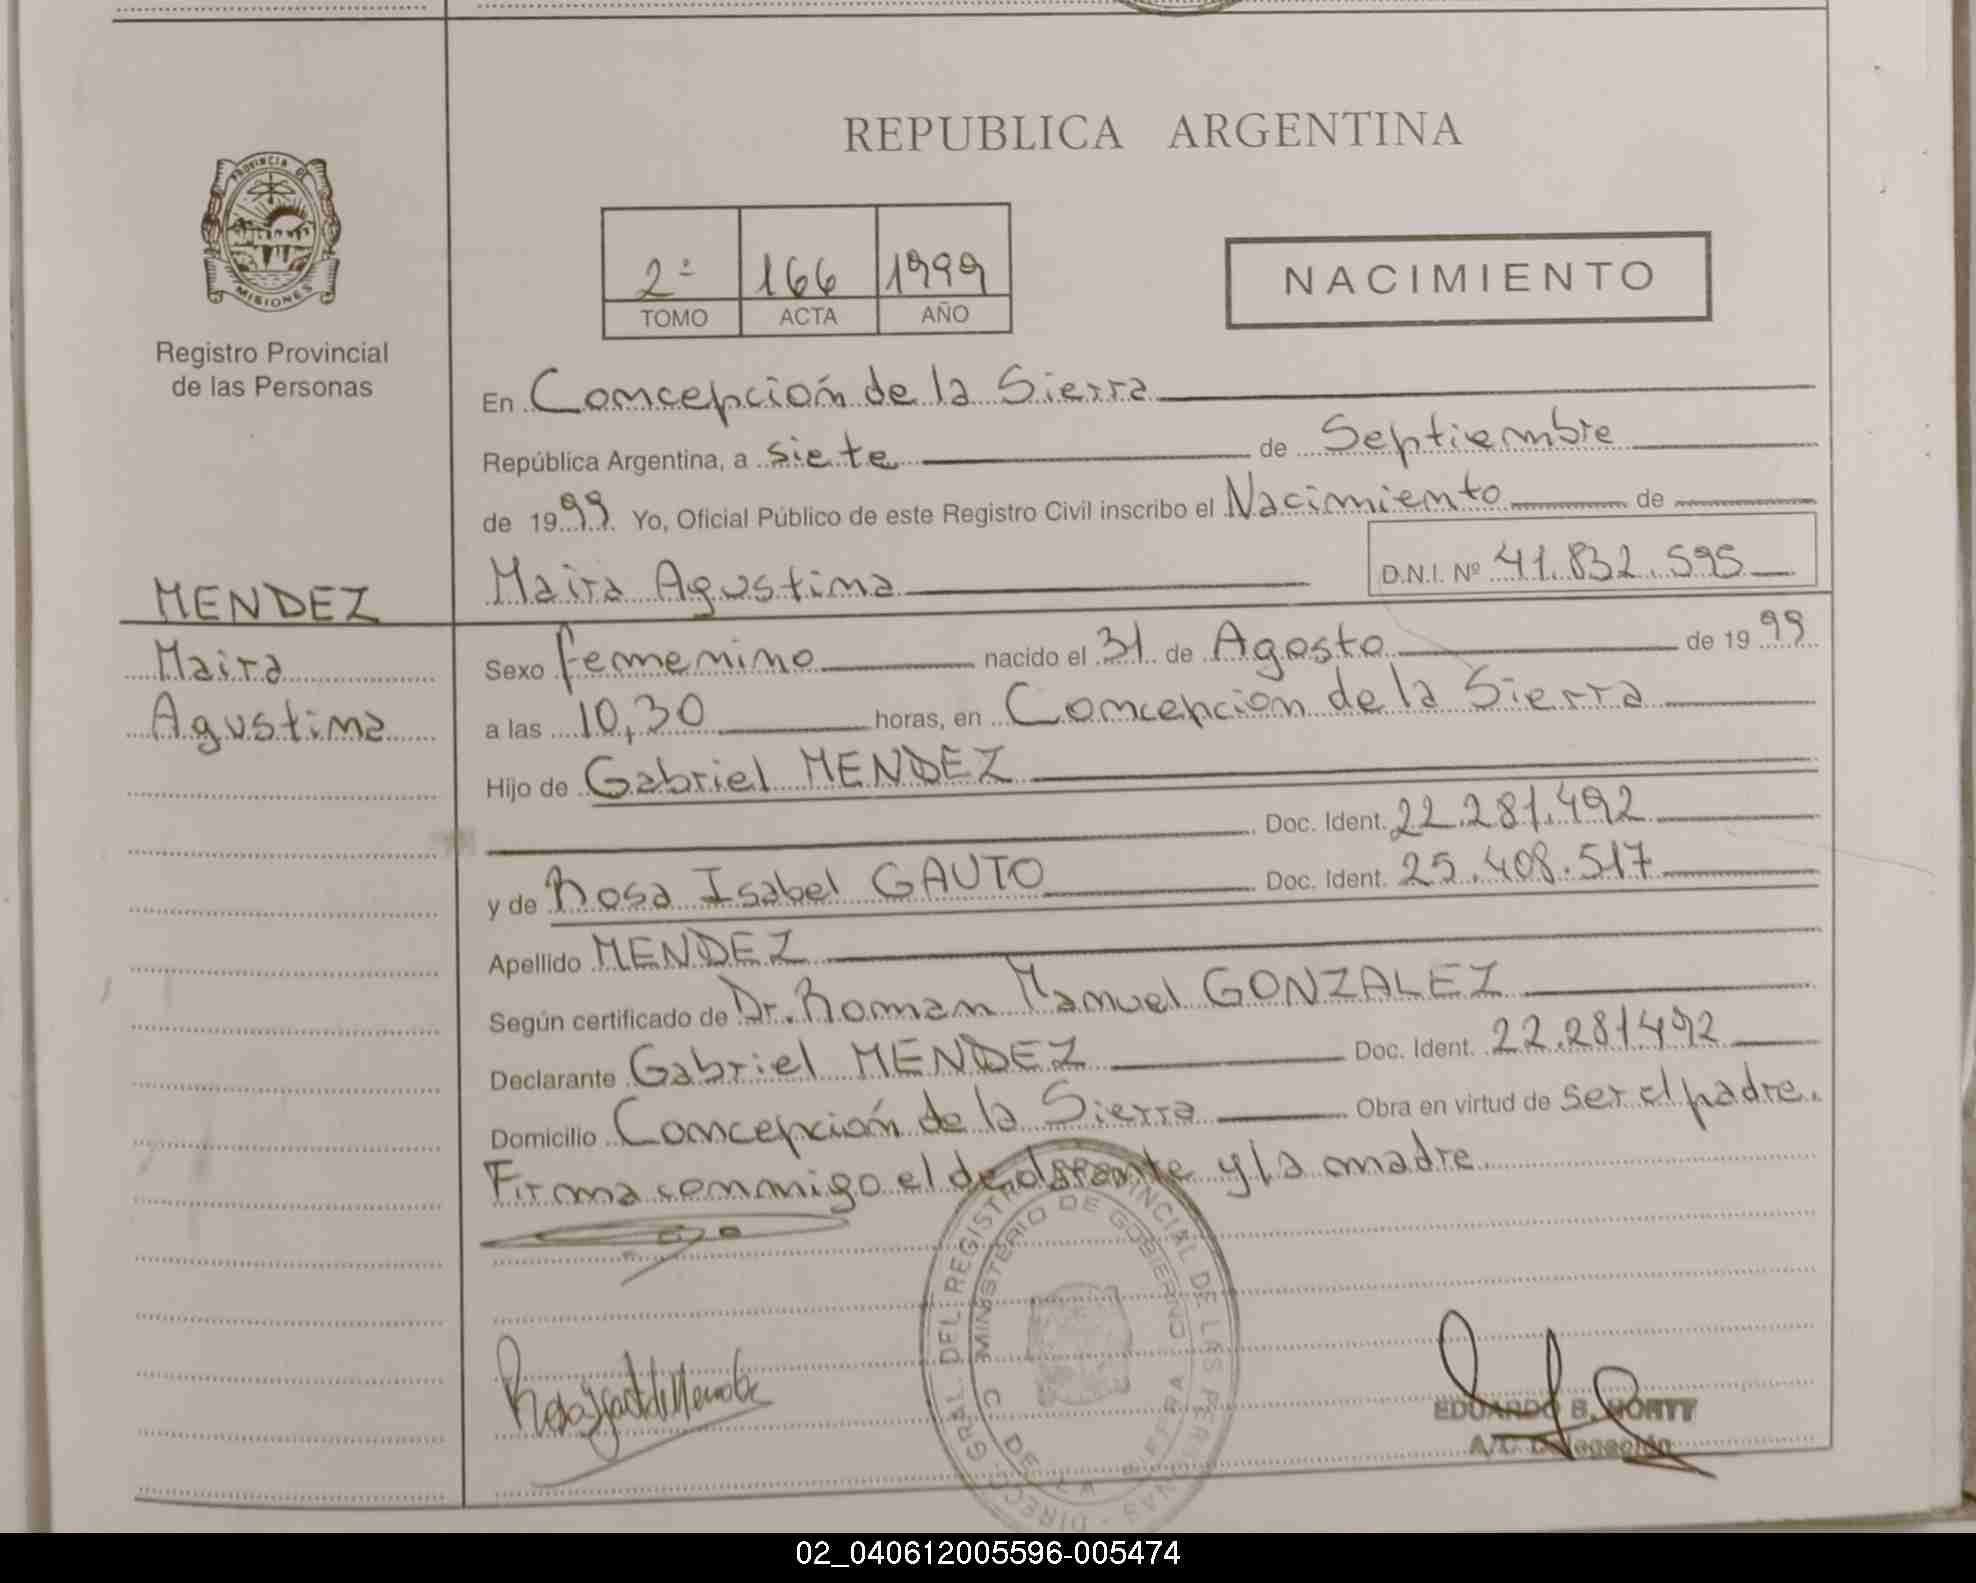 REPUBLICA ARGENTINA
PROVINCIA DE
MISIONES
Registro Provincial
de las Personas
2º 166 1999
TOMO ACTA AÑO
NACIMIENTO
En Concepción de la Sierra
República Argentina, a siete de Septiembre
de 1999 Yo, Oficial Público de este Registro Civil inscribo el Nacimiento de
Maira Agustina D.N.I. Nº 41.832.595
MENDEZ
Maira
Agustina
Sexo femenino nacido el 31 de Agosto de 1999
a las 10,30 horas, en Concepcion de la Sierra
Hijo de Gabriel MENDEZ
Doc. Ident. 22.281.492
y de Rosa Isabel GAUTO Doc. Ident. 25.408.517
Apellido MENDEZ
Según certificado de Dr. Roman Manuel GONZALEZ
Declarante Gabriel MENDEZ Doc. Ident. 22.281492
Domicilio Concepción de la Sierra Obra en virtud de ser el padre.
Firma conmigo el declarante y la madre
DIREC. GRAL. DEL REGISTRO PROVINCIAL DE LAS PERSONAS
MINISTERIO DE GOBIERNO
C. DE LA SIERRA
EDUARDO B.
A/C Delegación
02_040612005596-005474